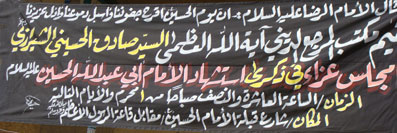 قال الامام الرضا عليه السلام: ان يوم الحسين اقرح جفوننا واسبل دموعنا واذل عزيزنا
يقيم مكتب المرجع الديني آية الله العظمى السيد صادق الحسيني الشيرازي
مجلس عزاء في ذكرى استشهاد الامام ابي عبد الله الحسين عليه السلام
الزمان / الساعة العاشرة والنصف صباحاً من المحرم والايام التالية
المكان / شارع قبلة الامام الحسين / مقابل قاعة الرسول الاعظم